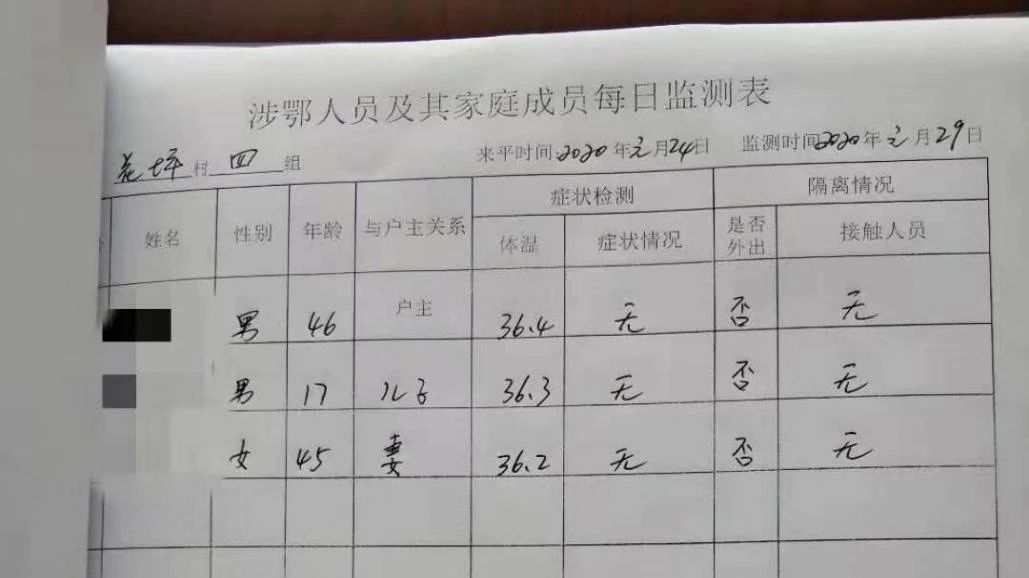 涉鄂人员及其家庭成员每日监测表
花坪村四组 来平时间:2020年元月24日 监测时间2020年元月29日
姓名 性别 年龄 与户主关系 症状检测 隔离情况
体温 症状情况 是否外出 接触人员
男 46 户主 36.4 无 否 无
男 17 儿子 36.3 无 否 无
女 45 妻 36.2 无 否 无